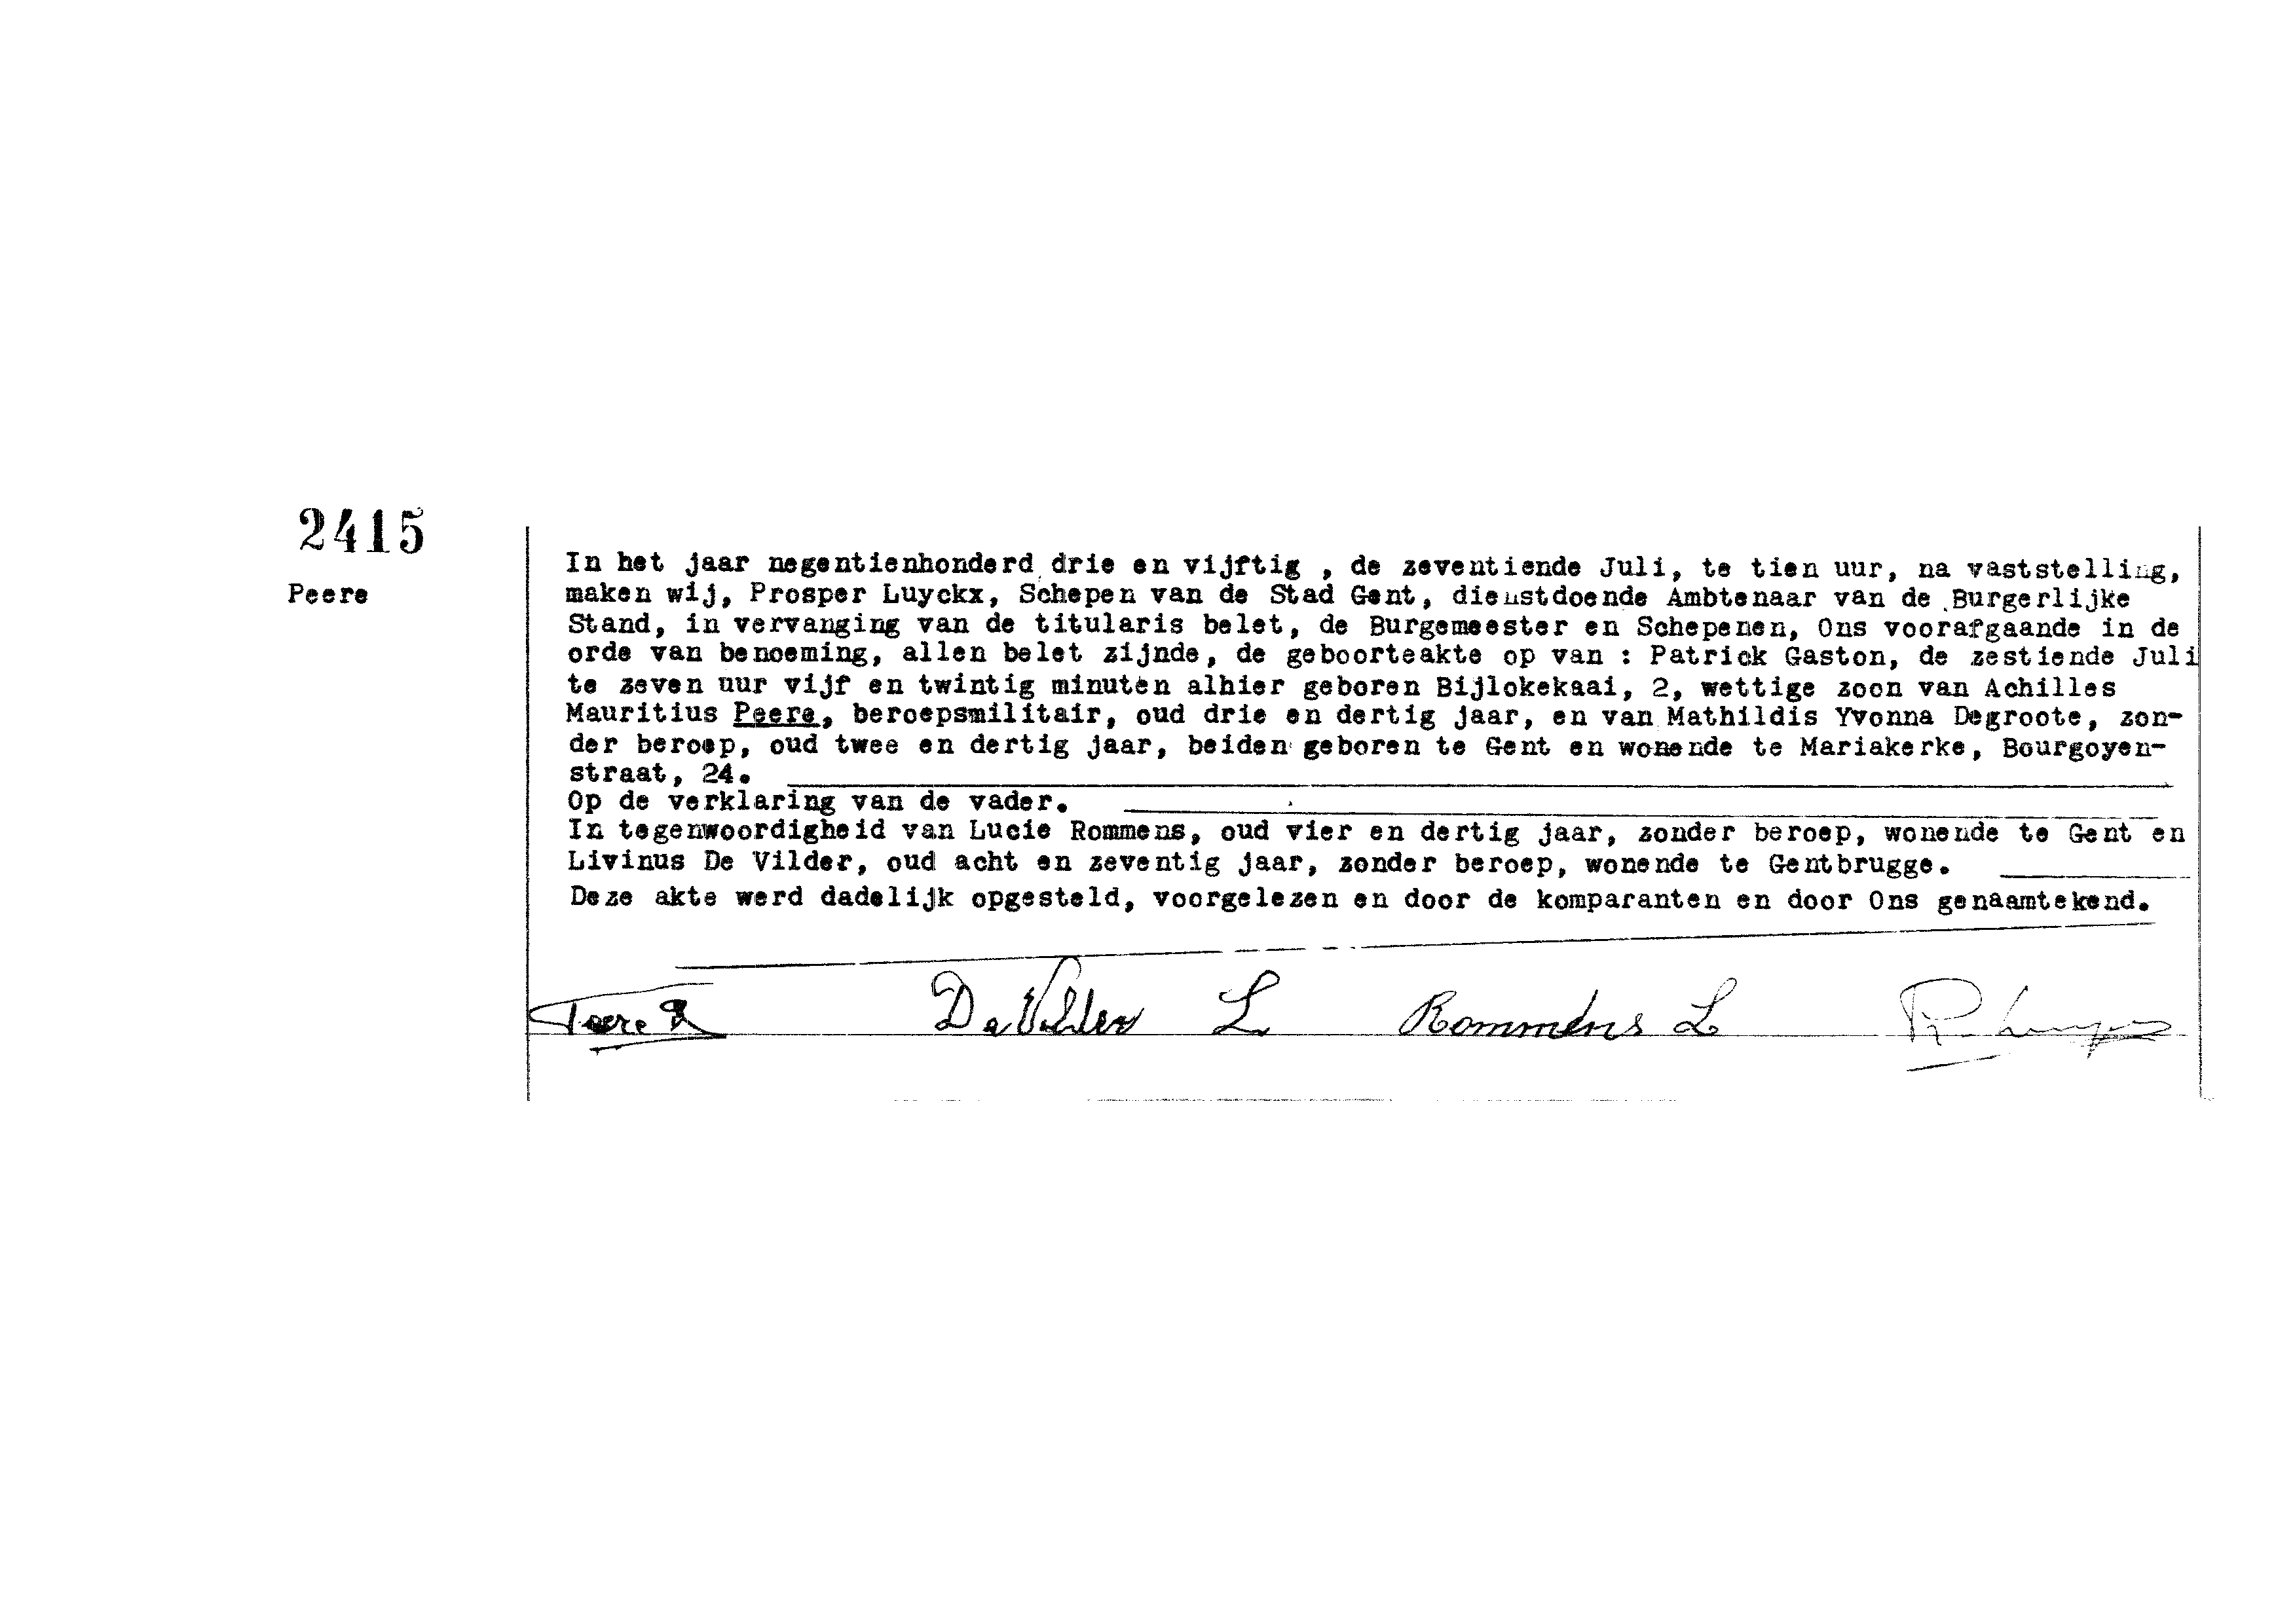 2415
Peere
In het jaar negentienhonderd drie en vijftig , de zeventiende Juli, te tien uur, na vaststelling,
maken wij, Prosper Luyckx, Schepen van de Stad Gent, dienstdoende Ambtenaar van de Burgerlijke
Stand, in vervanging van de titularis belet, de Burgemeester en Schepenen, Ons voorafgaande in de
orde van benoeming, allen belet zijnde, de geboorteakte op van : Patrick Gaston, de zestiende Juli
te zeven uur vijf en twintig minuten alhier geboren Bijlokekaai, 2, wettige zoon van Achilles
Mauritius Peere, beroepsmilitair, oud drie en dertig jaar, en van Mathildis Yvonna Degroote, zon-
der beroep, oud twee en dertig jaar, beiden geboren te Gent en wonende te Mariakerke, Bourgoyen-
straat, 24.
Op de verklaring van de vader.
In tegenwoordigheid van Lucie Rommens, oud vier en dertig jaar, zonder beroep, wonende te Gent en
Livinus De Vilder, oud acht en zeventig jaar, zonder beroep, wonende te Gentbrugge.
Deze akte werd dadelijk opgesteld, voorgelezen en door de komparanten en door Ons genaamtekend.
Peere De Vilder L Rommens L